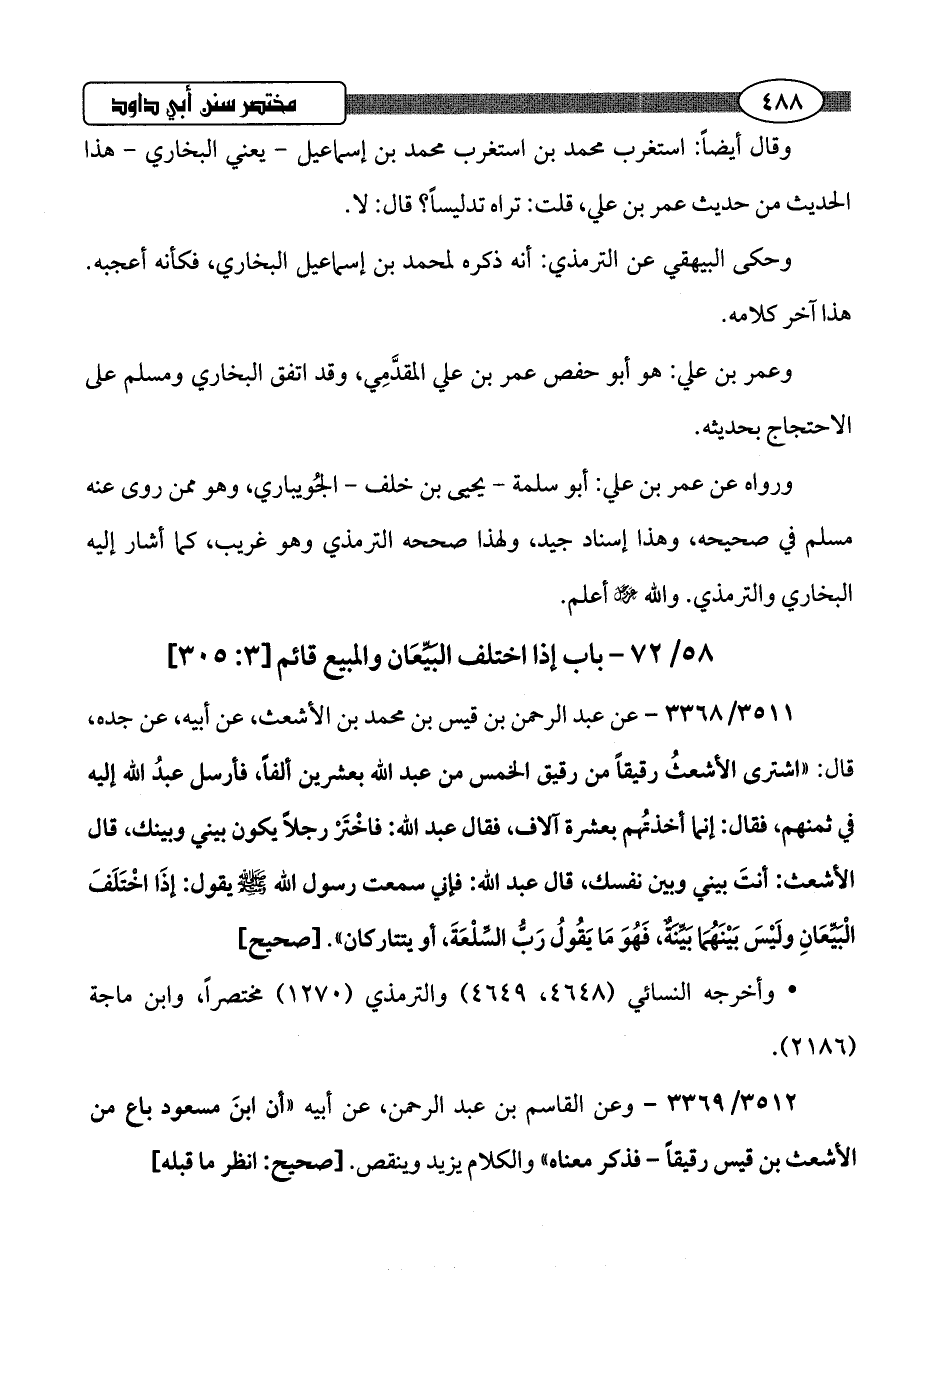 ٤٨٨
مختصر سنن أبي داود
وقال أيضاً: استغرب محمد بن استغرب محمد بن إسماعيل - يعني البخاري - هذا
الحديث من حديث عمر بن علي، قلت: تراه تدليساً؟ قال: لا.
وحكى البيهقي عن الترمذي: أنه ذكره لمحمد بن إسماعيل البخاري، فكأنه أعجبه.
هذا آخر كلامه.
وعمر بن علي: هو أبو حفص عمر بن علي المقدَّمِي، وقد اتفق البخاري ومسلم على
الاحتجاج بحديثه.
ورواه عن عمر بن علي: أبو سلمة - يحيى بن خلف - الجُويباري، وهو ممن روى عنه
مسلم في صحيحه، وهذا إسناد جيد، ولهذا صححه الترمذي وهو غريب، كما أشار إليه
البخاري والترمذي. والله ﷿ أعلم.
٥٨/ ٧٢ - باب إذا اختلف البَيِّعَان والمبيع قائم [٣: ٣٠٥]
٣٥١١/ ٣٣٦٨ - عن عبد الرحمن بن قيس بن محمد بن الأشعث، عن أبيه، عن جده،
قال: «اشترى الأشعثُ رقيقاً من رقيق الخمس من عبد الله بعشرين ألفاً، فأرسل عبدُ الله إليه
في ثمنهم، فقال: إنما أخذتُهم بعشرة آلاف، فقال عبد الله: فاخْتَرْ رجلاً يكون بيني وبينك، قال
الأشعث: أنتَ بيني وبين نفسك، قال عبد الله: فإني سمعت رسول الله ﷺ يقول: إذَا اخْتَلَفَ
الْبَيِّعَانِ ولَيْسَ بَيْنَهُمَا بَيِّنَةٌ، فَهُوَ مَا يَقُولُ رَبُّ السِّلْعَةَ، أو يتتاركان». [صحيح]
• وأخرجه النسائي (٤٦٤٨، ٤٦٤٩) والترمذي (١٢٧٠) مختصراً، وابن ماجة
(٢١٨٦).
٣٥١٢/ ٣٣٦٩ - وعن القاسم بن عبد الرحمن، عن أبيه «أن ابنَ مسعود باع من
الأشعث بن قيس رقيقاً - فذكر معناه» والكلام يزيد وينقص. [صحيح: انظر ما قبله]